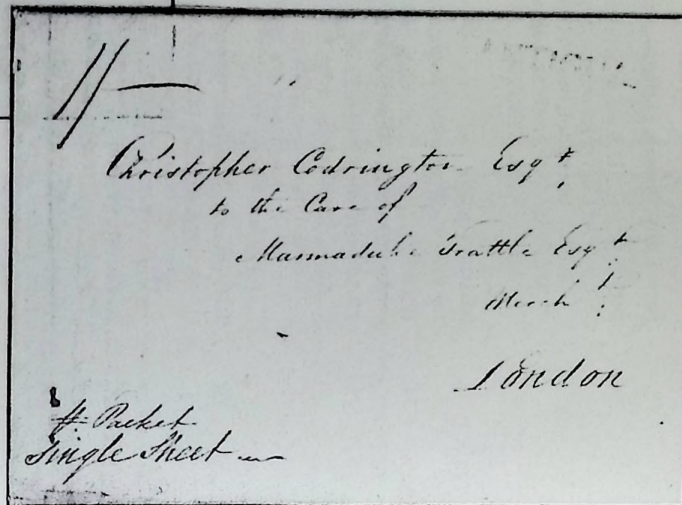 1/-
Christopher Codrington Esqr
to the Care of
Marmaduke Trattle Esqr
Mercht
London
Packet
Single Sheet